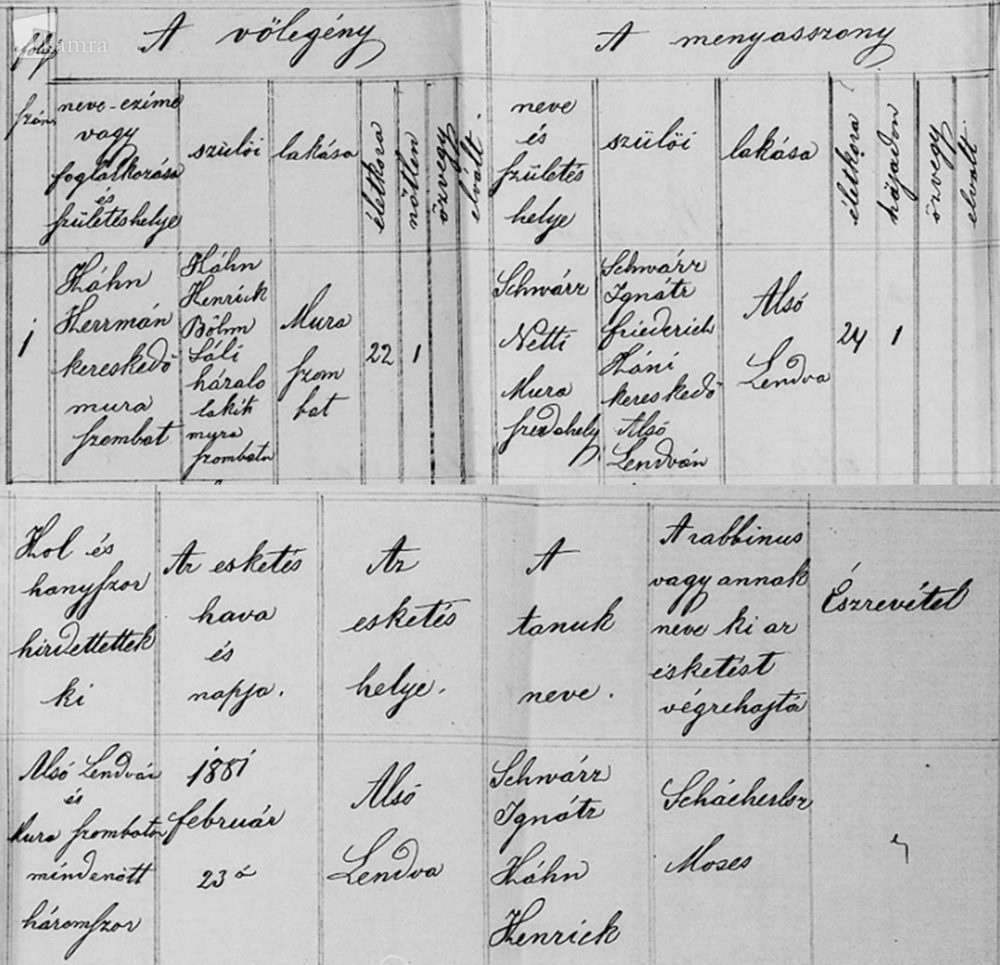 Kamra
folyó
szám
A völegény
A menyasszony
neve-czíme
vagy
foglalkozása
és
születéshelye
szülöi
lakása
életkora
nötlen
özvegy
elvált
neve
és
születés
helye
szülöi
lakása
életkora
hajadon
özvegy
elvált
1
Káhn
Herrmán
kereskedö
mura
szombat
Káhn
Henrick
Böhm
Sáli
lakik
mura
szombatn
Mura
szom
bat
22
1
Schwárz
Netti
Mura
Schwárz
Ignátz
friederich
Háni
kereskedö
Alsó
Lendván
Alsó
Lendva
24
1
Hol és
hanyszor
hirdettettek
ki
Az esketés
hava
és
napja.
Az
esketés
helye.
A
tanuk
neve.
A rabbinus
vagy annak
neve ki az
esketést
végrehajtá
Észrevétel
Alsó Lendván
és
Mura szombatn
mindenött
háromszor
1881
február
23á
Alsó
Lendva
Schwárz
Ignátz
Káhn
Henrick
Moses